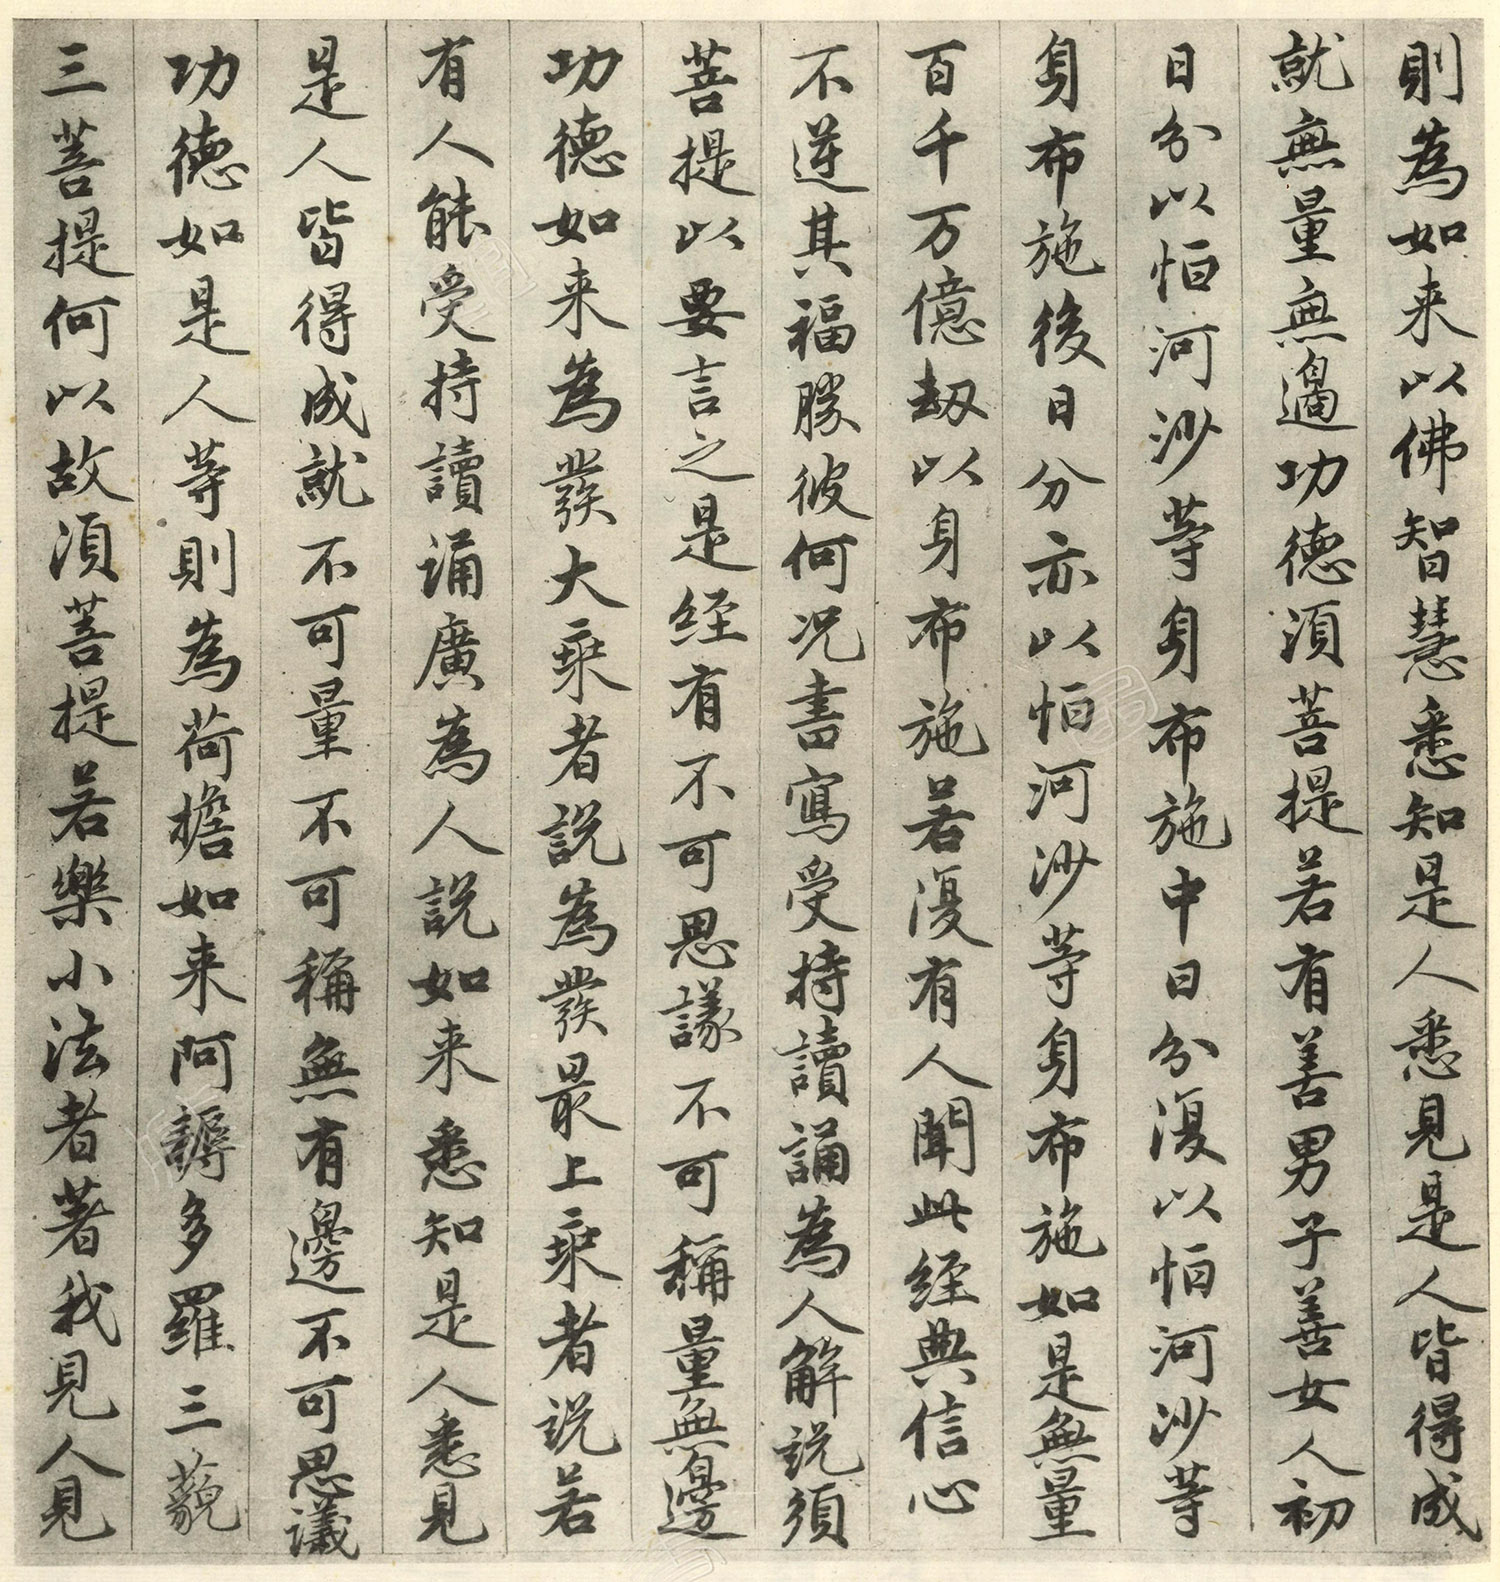 則為如来以佛智慧悉知是人悉見是人皆得成
就無量無邊功德須菩提若有善男子善女人初
日分以恒河沙等身布施中日分復以恒河沙等
身布施後日分亦以恒河沙等身布施如是無量
百千万億劫以身布施若復有人聞此経典信心
不逆其福勝彼何況書寫受持讀誦為人解説須
菩提以要言之是経有不可思議不可稱量無邊
功德如来為發大乘者説為發最上乘者説若
有人能受持讀誦廣為人説如来悉知是人悉見
是人皆得成就不可量不可稱無有邊不可思議
功德如是人等則為荷擔如来阿耨多羅三藐
三菩提何以故須菩提若樂小法者著我見人見